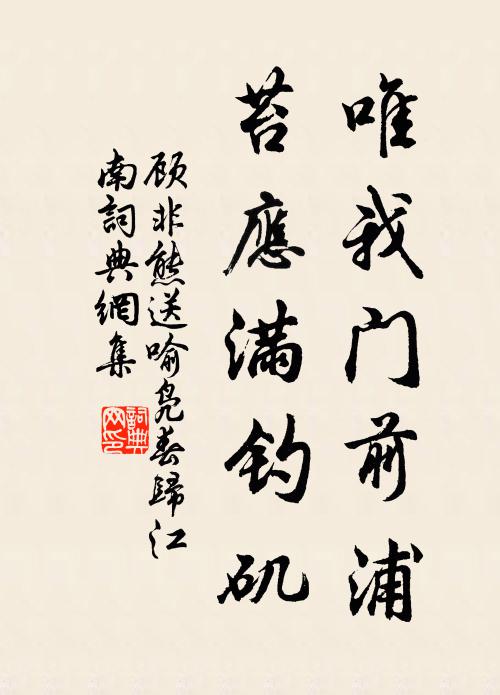 唯我门前浦
苔應满钓矶
顾非熊送喻凫春歸江
南詞典網集
詞典网印